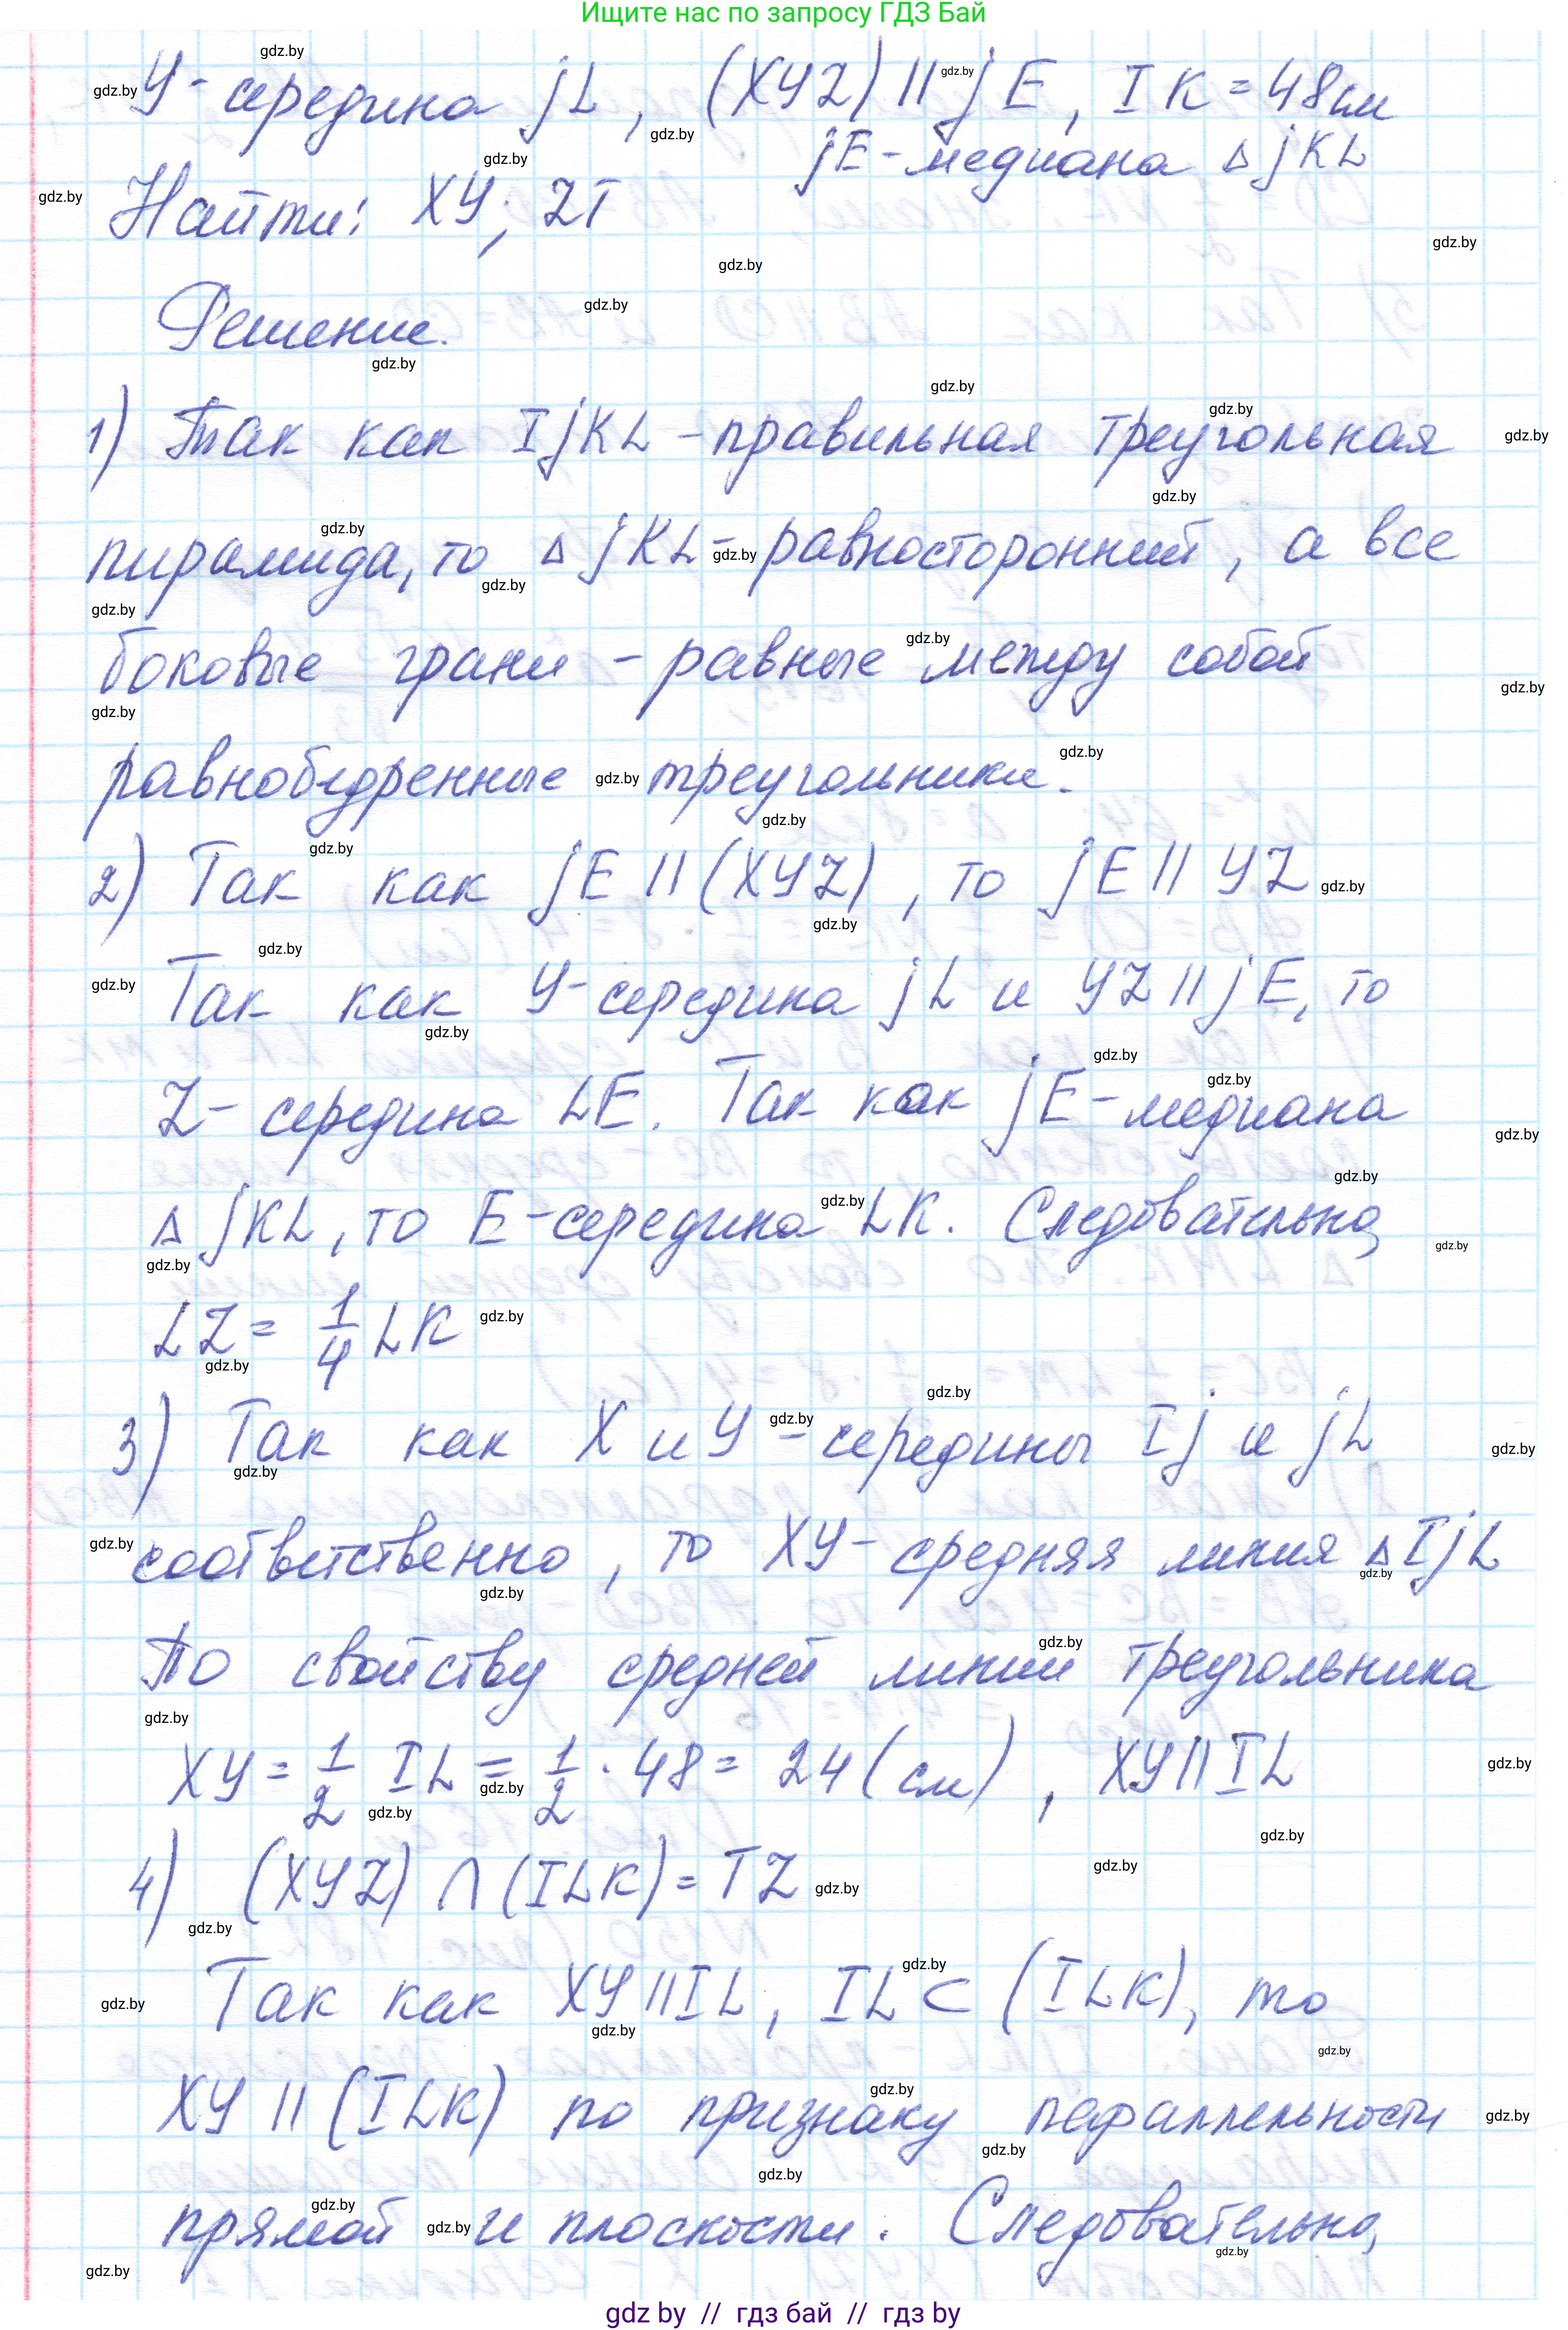 Ищите нас по запросу ГДЗ Бай
Y - середина JL, (XYZ) || JE, IK = 48 см
JE - медиана Δ JKL
Найти: XY; ZT
Решение.
1) Так как IJKL - правильная треугольная
пирамида, то Δ JKL - равносторонний, а все
боковые грани - равные между собой
равнобедренные треугольники.
2) Так как JE || (XYZ), то JE || YZ
Так как Y - середина JL и YZ || JE, то
Z - середина LE. Так как JE - медиана
Δ JKL, то E - середина LK. Следовательно,
LZ = 1/4 LK
3) Так как X и Y - середины IJ и JL
соответственно, то XY - средняя линия Δ IJL
По свойству средней линии треугольника
XY = 1/2 IL = 1/2 · 48 = 24 (см), XY || IL
4) (XYZ) ∩ (ILK) = TZ
Так как XY || IL, IL ⊂ (ILK), то
XY || (ILK) по признаку параллельности
прямой и плоскости. Следовательно,
gdz by // гдз бай // гдз by